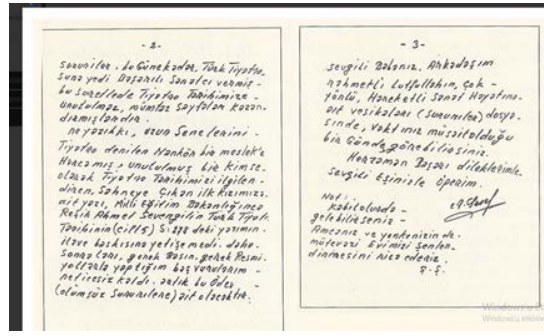 - 2 -
sururiler, bu Güne kadar, Türk Tiyatro
suna yedi Başarılı Sanatcı vermiş -
bu suretlede Tiyatro Tarihimize -
unutulmaz, mümtaz sayfalar kazan-
dırmışlardır.
ne yazıkki, uzun Senelerini -
Tiyatro denilen Nankör bir mesleğ'e
Harcamış, unutulmuş bir kimse-
olarak Tiyatro Tarihimizi ilgilen-
diren, Sahneye Çıkan ilk Kızımıza-
ait yazı, Milli Eğitim Bakanlığınca
Refik Ahmet Sevengilin Türk Tiyat.
Tarihinin (cilt 5) S: deki yazımın.
ilave baskısına yetişemedi. daha-
Sonraları, gerek Basın, gerek Resmi-
yollarla yaptığım baş vurularım -
neticesiz kaldı. artık bu Ödev -
(ölümsüz Sururilere) ait olacaktır.
- 3 -
sevgili Babanız, Arkadaşım
rahmetli Lutfullahın, Çok -
yönlü, Hareketli Sanat Hayatına-
ait vesikaları (sururiler) dosya-
sında, vaktiniz müsait olduğu
bir Günde, görebilirsiniz.
Her zaman Başarı dileklerimle.
Sevgili Eşinizle Öperim.
Not:
Kabil olurda -
gelebilirseniz -
Amcanız ve yenkenizin de-
mütevazi Evimizi Şenlen-
dirmesini rica ederiz.
S.S.
Windows'u Et
Windows'u etkinl